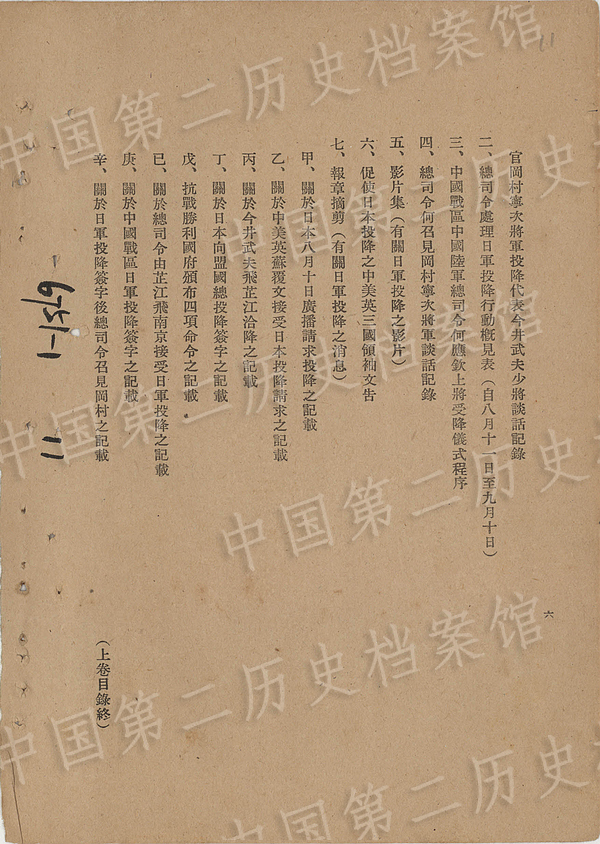 官岡村寧次將軍投降代表今井武夫少將談話記錄
二、總司令處理日軍投降行動概見表（自八月十一日至九月十日）
三、中國戰區中國陸軍總司令何應欽上將受降儀式程序
四、總司令何召見岡村寧次將軍談話記錄
五、影片集（有關日軍投降之影片）
六、促使日本投降之中美英三國領袖文告
七、報章摘剪（有關日軍投降之消息）
甲、關於日本八月十日廣播請求投降之記載
乙、關於中美英蘇覆文接受日本投降請求之記載
丙、關於今井武夫飛芷江洽降之記載
丁、關於日本向盟國總投降簽字之記載
戊、抗戰勝利國府頒布四項命令之記載
巳、關於總司令由芷江飛南京接受日軍投降之記載
庚、關於中國戰區日軍投降簽字之記載
辛、關於日軍投降簽字後總司令召見岡村之記載
（上卷目錄終）
六
11
11
中国第二历史档案馆
中国第二历史档案馆
中国第二历史档案馆
中国第二历史档案馆
中国第二历史档案馆
中国第二历史档案馆